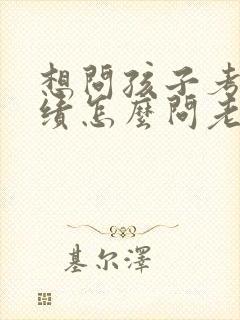 想問孩子考
績怎麼問老
基尔澤